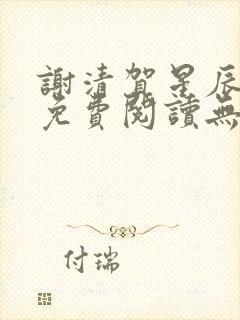 謝清賀星辰
免費閱讀無
付瑞